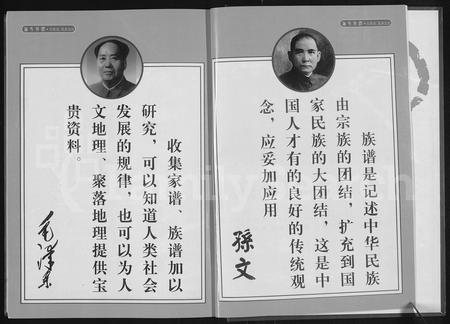 族谱是记述中华民族
由宗族的团结，扩充到国
家民族的大团结，这是中
国人才有的良好的传统观
念，应妥加应用
孫文
收集家谱、族谱加以
研究，可以知道人类社会
发展的规律，也可以为人
文地理、聚落地理提供宝
贵资料。
毛泽东